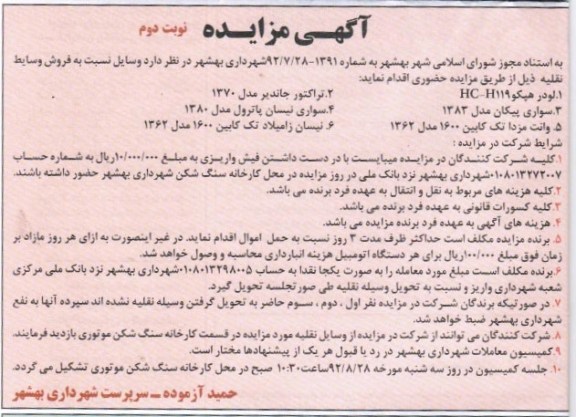 آگهی مزایده نوبت دوم
به استناد مجوز شورای اسلامی شهر بهشهر به شماره ۱۳۹۱-۹۲/۷/۲۸شهرداری بهشهر در نظر دارد وسایل نسبت به فروش وسایط
نقلیه ذیل از طریق مزایده حضوری اقدام نماید:
۱.لودر هپکوHC-H۱۱۹ ۲.تراکتور جاندیر مدل ۱۳۷۰
۳.سواری پیکان مدل ۱۳۸۳ ۴.سواری نیسان پاترول مدل ۱۳۸۰
۵. وانت مزدا تک کابین ۱۶۰۰ مدل ۱۳۶۲ ۶. نیسان زامیلاد تک کابین ۱۶۰۰ مدل ۱۳۶۲
شرایط شرکت در مزایده :
۱.کلیه شرکت کنندگان در مزایده میبایست با در دست داشتن فیش واریزی به مبلغ ۱۰/۰۰۰/۰۰۰ریال به شماره حساب
۰۱۰۸۰۱۳۲۷۲۰۰۷شهرداری بهشهر نزد بانک ملی در روز مزایده در محل کارخانه سنگ شکن شهرداری بهشهر حضور داشته باشند.
۲.کلیه هزینه های مربوط به نقل و انتقال به عهده فرد برنده می باشد.
۳.کلیه کسورات قانونی به عهده فرد برنده می باشد.
۴. هزینه های آگهی به عهده فرد برنده مزایده می باشد.
۵. برنده مزایده مکلف است حداکثر ظرف مدت ۳ روز نسبت به حمل اموال اقدام نماید. در غیر اینصورت به ازای هر روز مازاد بر
زمان فوق مبلغ ۱۰۰/۰۰۰ریال برای هر دستگاه اتومبیل هزینه انبارداری محاسبه و وصول خواهد شد.
۶.برنده مکلف است مبلغ مورد معامله را به صورت یکجا نقدا به حساب ۰۱۰۸۰۱۳۲۹۸۰۰۵شهرداری بهشهر نزد بانک ملی مرکزی
شعبه شهرداری واریز و نسبت به تحویل وسیله نقلیه طی صورتجلسه تحویل گیرد.
۷. در صورتیکه برندگان شرکت در مزایده نفر اول ، دوم ، سوم حاضر به تحویل گرفتن وسیله نقلیه نشده اند سپرده آنها به نفع
شهرداری بهشهر ضبط خواهد شد.
۸. شرکت کنندگان می توانند از شرکت در مزایده از وسایل نقلیه مورد مزایده در قسمت کارخانه سنگ شکن موتوری بازدید فرمایند.
۹.کمیسیون معاملات شهرداری بهشهر در رد یا قبول هر یک از پیشنهادها مختار است.
۱۰. جلسه کمیسیون در روز سه شنبه مورخه ۹۲/۸/۲۸ساعت۱۰:۳۰ صبح در محل کارخانه سنگ شکن موتوری تشکیل می گردد.
حمید آزموده ــ سرپرست شهرداری بهشهر